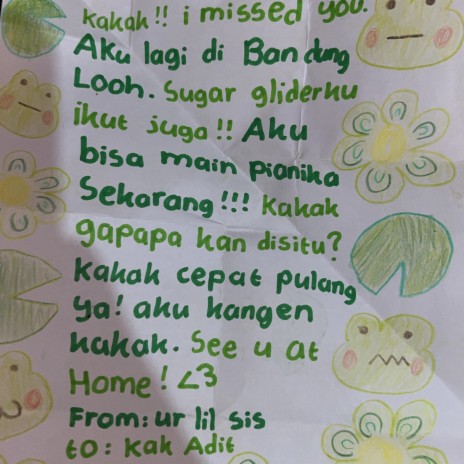 Kakak!! i missed you.
AKu lagi di Bandung
Looh. Sugar gliderku
ikut juga!! AKu
bisa main pianika
Sekarang!!! Kakak
gapapa kan disitu?
Kakak cepat pulang
ya! aku kangen
kakak. See u at
Home! <3
From: ur lil sis
to: Kak Adit